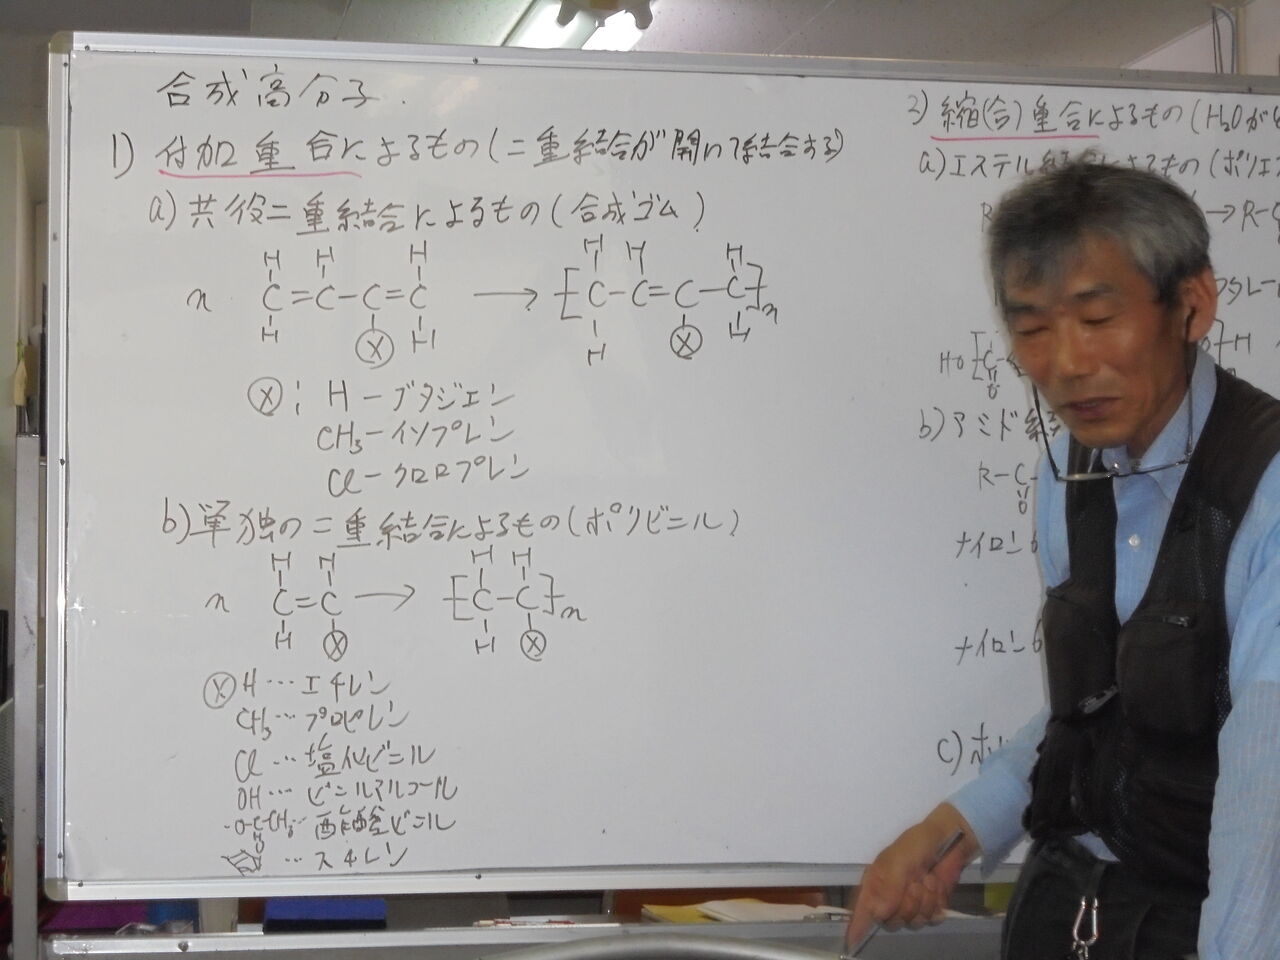 合成高分子.
1) 付加重合によるもの(二重結合が開いて結合する)
a) 共役二重結合によるもの(合成ゴム)
H H H
n C=C-C=C → [C-C=C-C]n
H X H
H H H
H X H
X : H-ブタジエン
CH3-イソプレン
Cl-クロロプレン
b) 単独の二重結合によるもの(ポリビニル)
H H
n C=C → [C-C]n
H X
H H
H X
X H…エチレン
CH3…プロピレン
Cl…塩化ビニル
OH…ビニルアルコール
-O-C-CH3…酢酸ビニル
O
…スチレン
2) 縮(合)重合によるもの(H2Oが
a) エステル結合によるもの(ポリエス
R → R-C
HO[C
O
H
n
b) アミド結
R-C-
O
ナイロン6
ナイロン6
c) ポリ